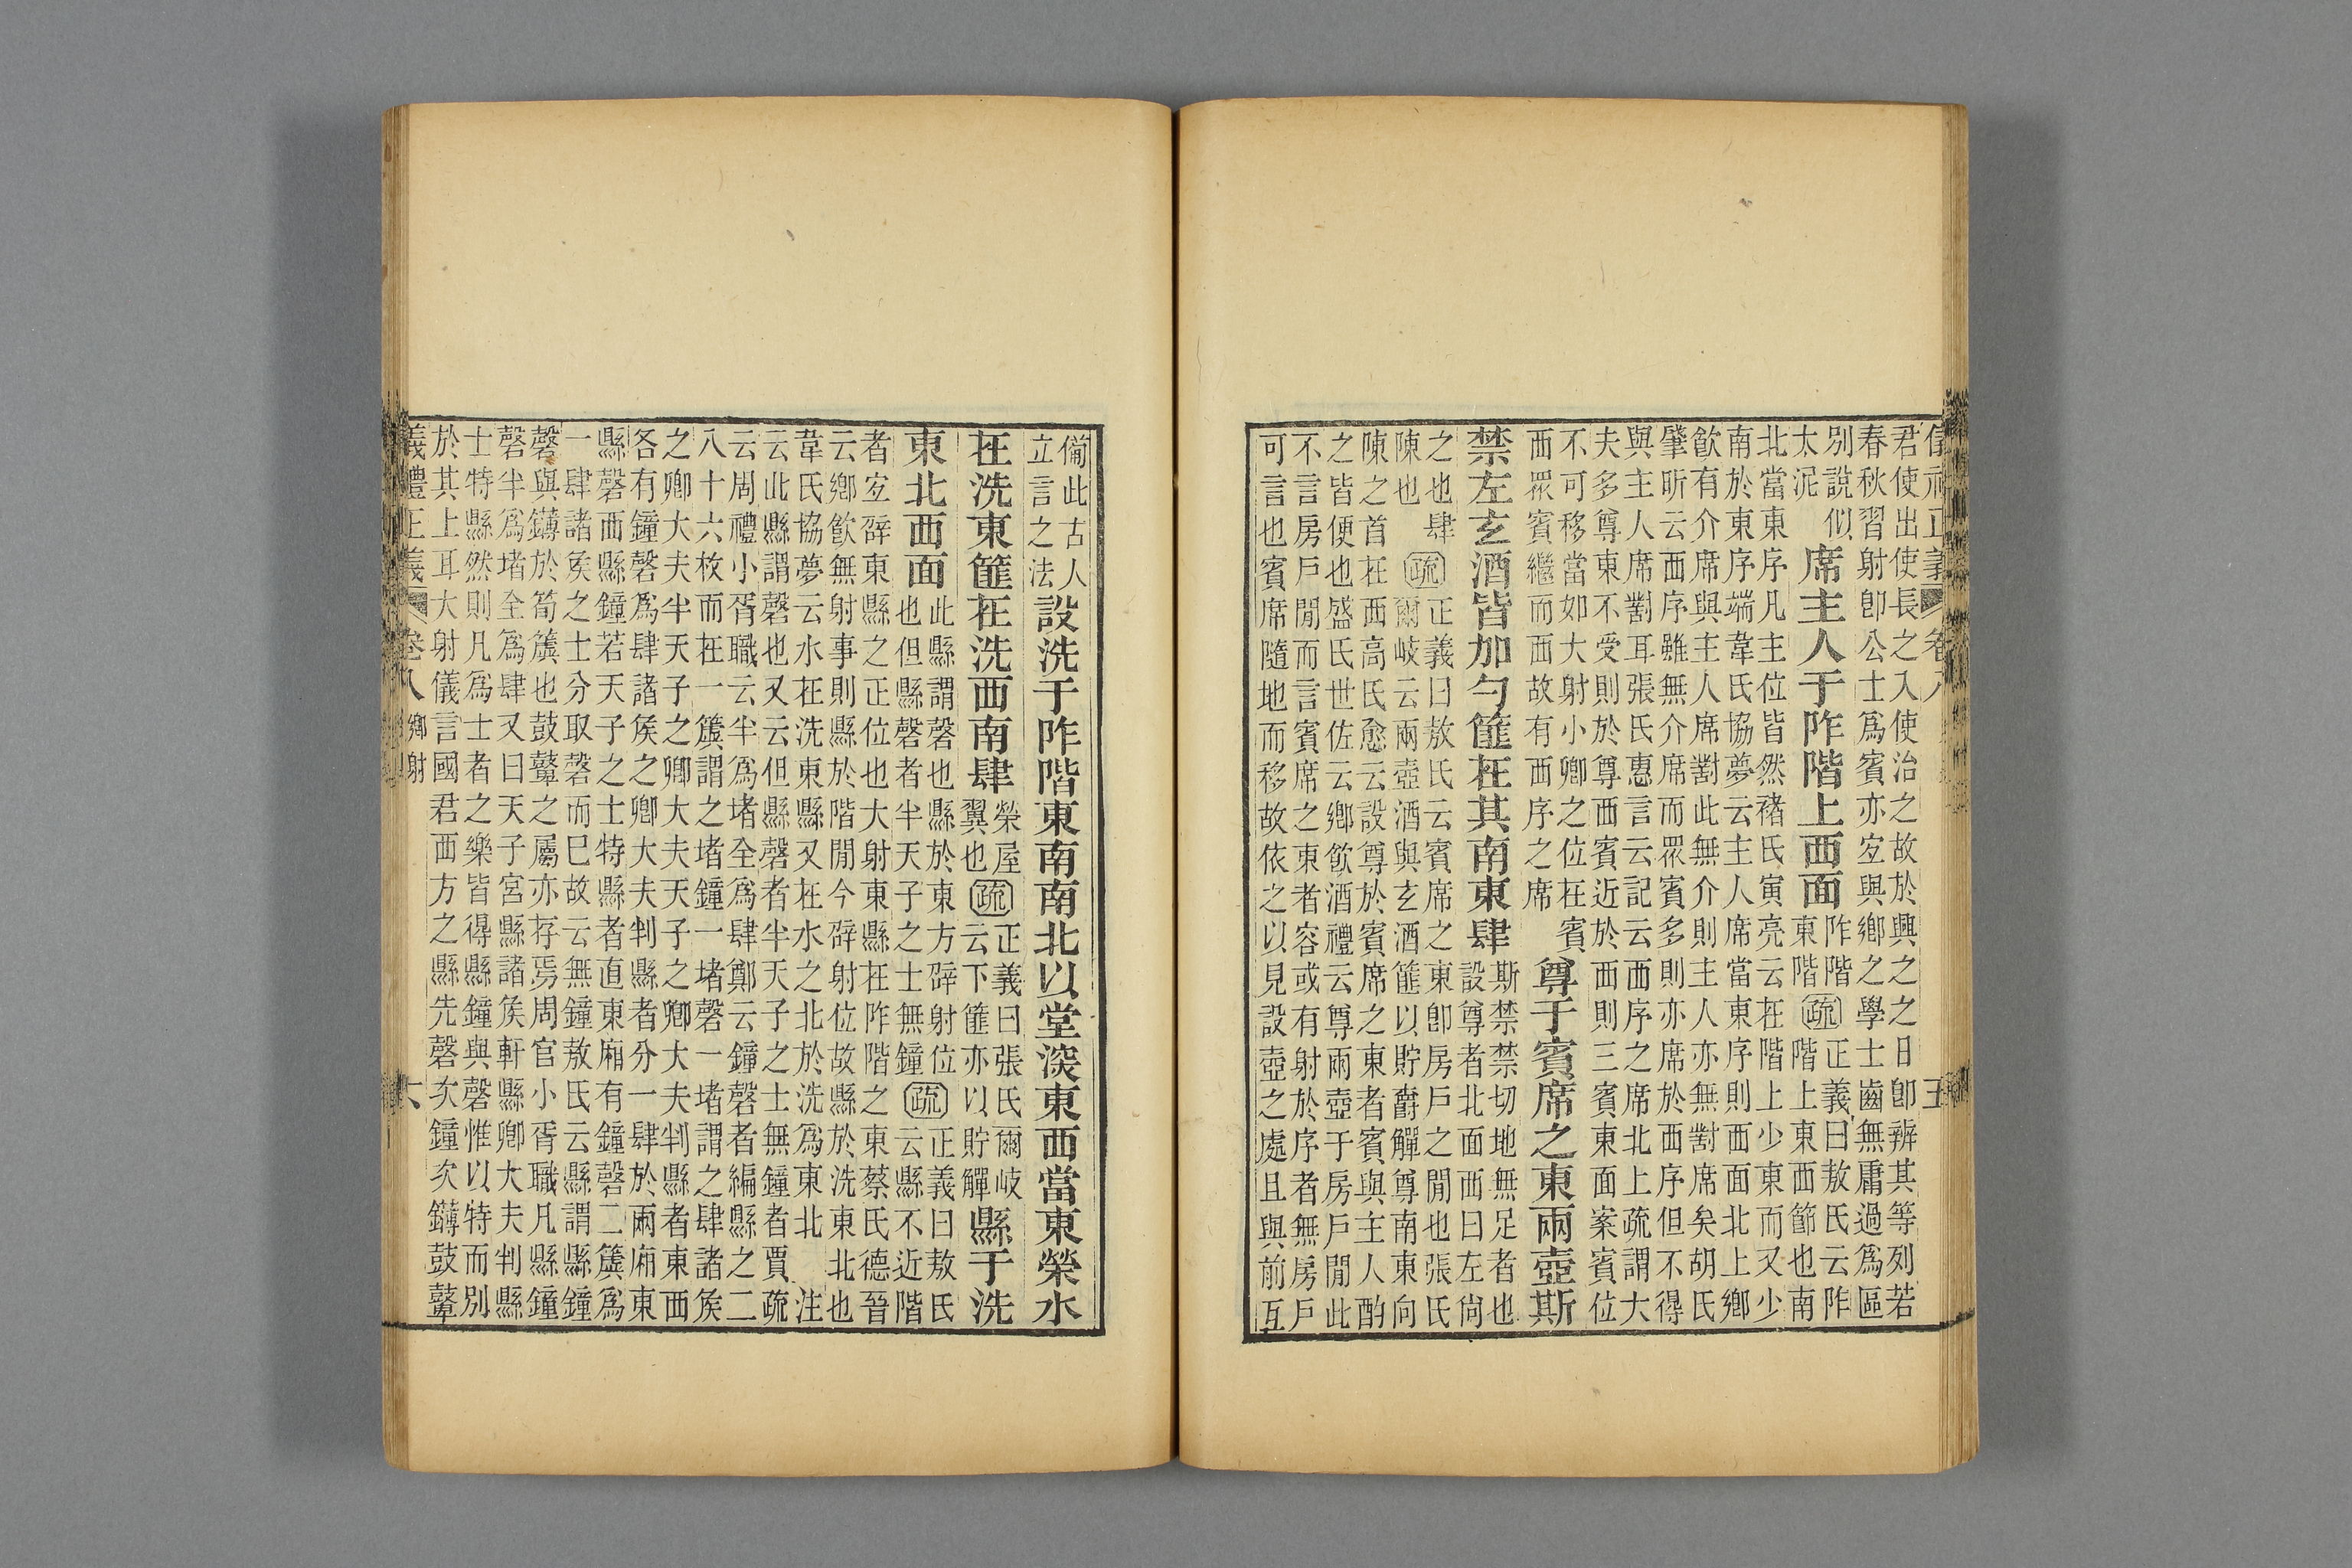 君使出使長之入使治之故於興之之日卽辨其等列若
春秋習射卽公士爲賓亦宐與鄉之學士齒無庸過爲區
別說似
太泥
席主人于阼階上西面
阼階
東階
疏
正義曰敖氏云阼
階上東西節也南
北當東序凡主位皆然褚氏寅亮云在階上少東而又少
南於東序端韋氏協夢云主人席當東序則西面北上鄉
飮有介席與主人席對此無介則主人亦無對席矣胡氏
肈昕云西序雖無介席而眾賓多則亦席於西序但不得
與主人席對耳張氏惠言云記云西序之席北上疏謂大
夫多尊東不受則於尊西賓近於西則三賓東面案賓位
不可移當如大射小卿之位在賓
西眾賓繼而西故有西序之席
尊于賓席之東兩壺斯
禁左玄酒皆加勺篚在其南東肆
斯禁禁切地無足者也
設尊者北面西曰左尙
之也肆
陳也
疏
正義曰敖氏云賓席之東卽房戶之閒也張氏
爾岐云兩壺酒與玄酒篚以貯爵觶尊南東向
陳之首在西高氏愈云設尊於賓席之東者賓與主人酌
之皆便也盛氏世佐云鄉飮酒禮云尊兩壺于房戶閒此
不言房戶閒而言賓席之東者容或有射於序者無房戶
可言也賓席隨地而移故依之以見設壺之處且與前互
備此古人
立言之法
設洗于阼階東南南北以堂深東西當東榮水
在洗東篚在洗西南肆
榮屋
翼也
疏
正義曰張氏爾岐
云下篚亦以貯觶
縣于洗
東北西面
此縣謂磬也縣於東方辟射位
也但縣磬者半天子之士無鐘
疏
正義曰敖氏
云縣不近階
者宐辟東縣之正位也大射東縣在阼階之東蔡氏德晉
云鄉飮無射事則縣於階閒今辟射位故縣於洗東北也
韋氏協夢云水在洗東縣又在水之北於洗爲東北 注
云此縣謂磬也又云但縣磬者半天子之士無鐘者賈疏
云周禮小胥職云半爲堵全爲肆鄭云鐘磬者編縣之二
八十六枚而在一簴謂之堵鐘一堵磬一堵謂之肆諸矦
之卿大夫半天子之卿大夫天子之卿大夫判縣者東西
各有鐘磬爲肆諸矦之卿大夫判縣者分一肆於兩廂東
縣磬西縣鐘若天子之士特縣者直東廂有鐘磬二簴爲
一肆諸矦之士分取磬而已故云無鐘敖氏云縣謂縣鐘
磬與鑮於筍簴也鼓鼙之屬亦存焉周官小胥職凡縣鐘
磬半爲堵全爲肆又曰天子宮縣諸矦軒縣卿大夫判縣
士特縣然則凡爲士者之樂皆得縣鐘與磬惟以特而別
於其上耳大射儀言國君西方之縣先磬次鐘次鑮鼓鼙